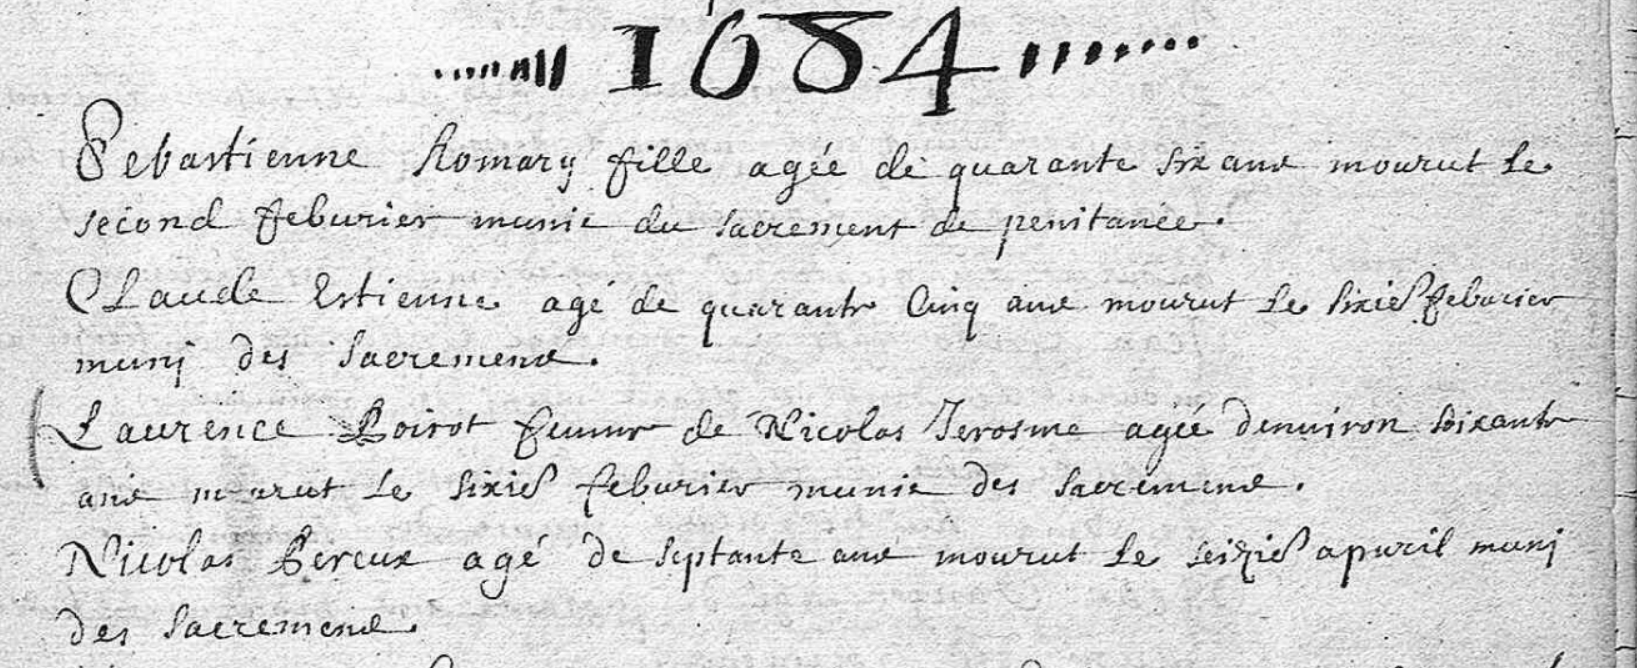 1684
Sebastienne Romary fille agée de quarante six ans mourut le
second feburier munie du sacrement de penitance.
Claude Estienne agé de quarante cinq ans mourut le sixies feburier
muni des sacremens.
Laurence Poirot femme de Nicolas Jerosme agée denuiron soixante
ans mourut le sixies feburier munie des sacremens.
Nicolas Pereux agé de septante ans mourut le seizies apuril muni
des sacremens.